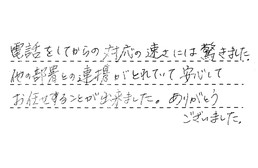 電話をしてからの対応の速さには驚きました。
他の部署との連携がとれていて安心して
お任せすることが出来ました。ありがとう
ございました。